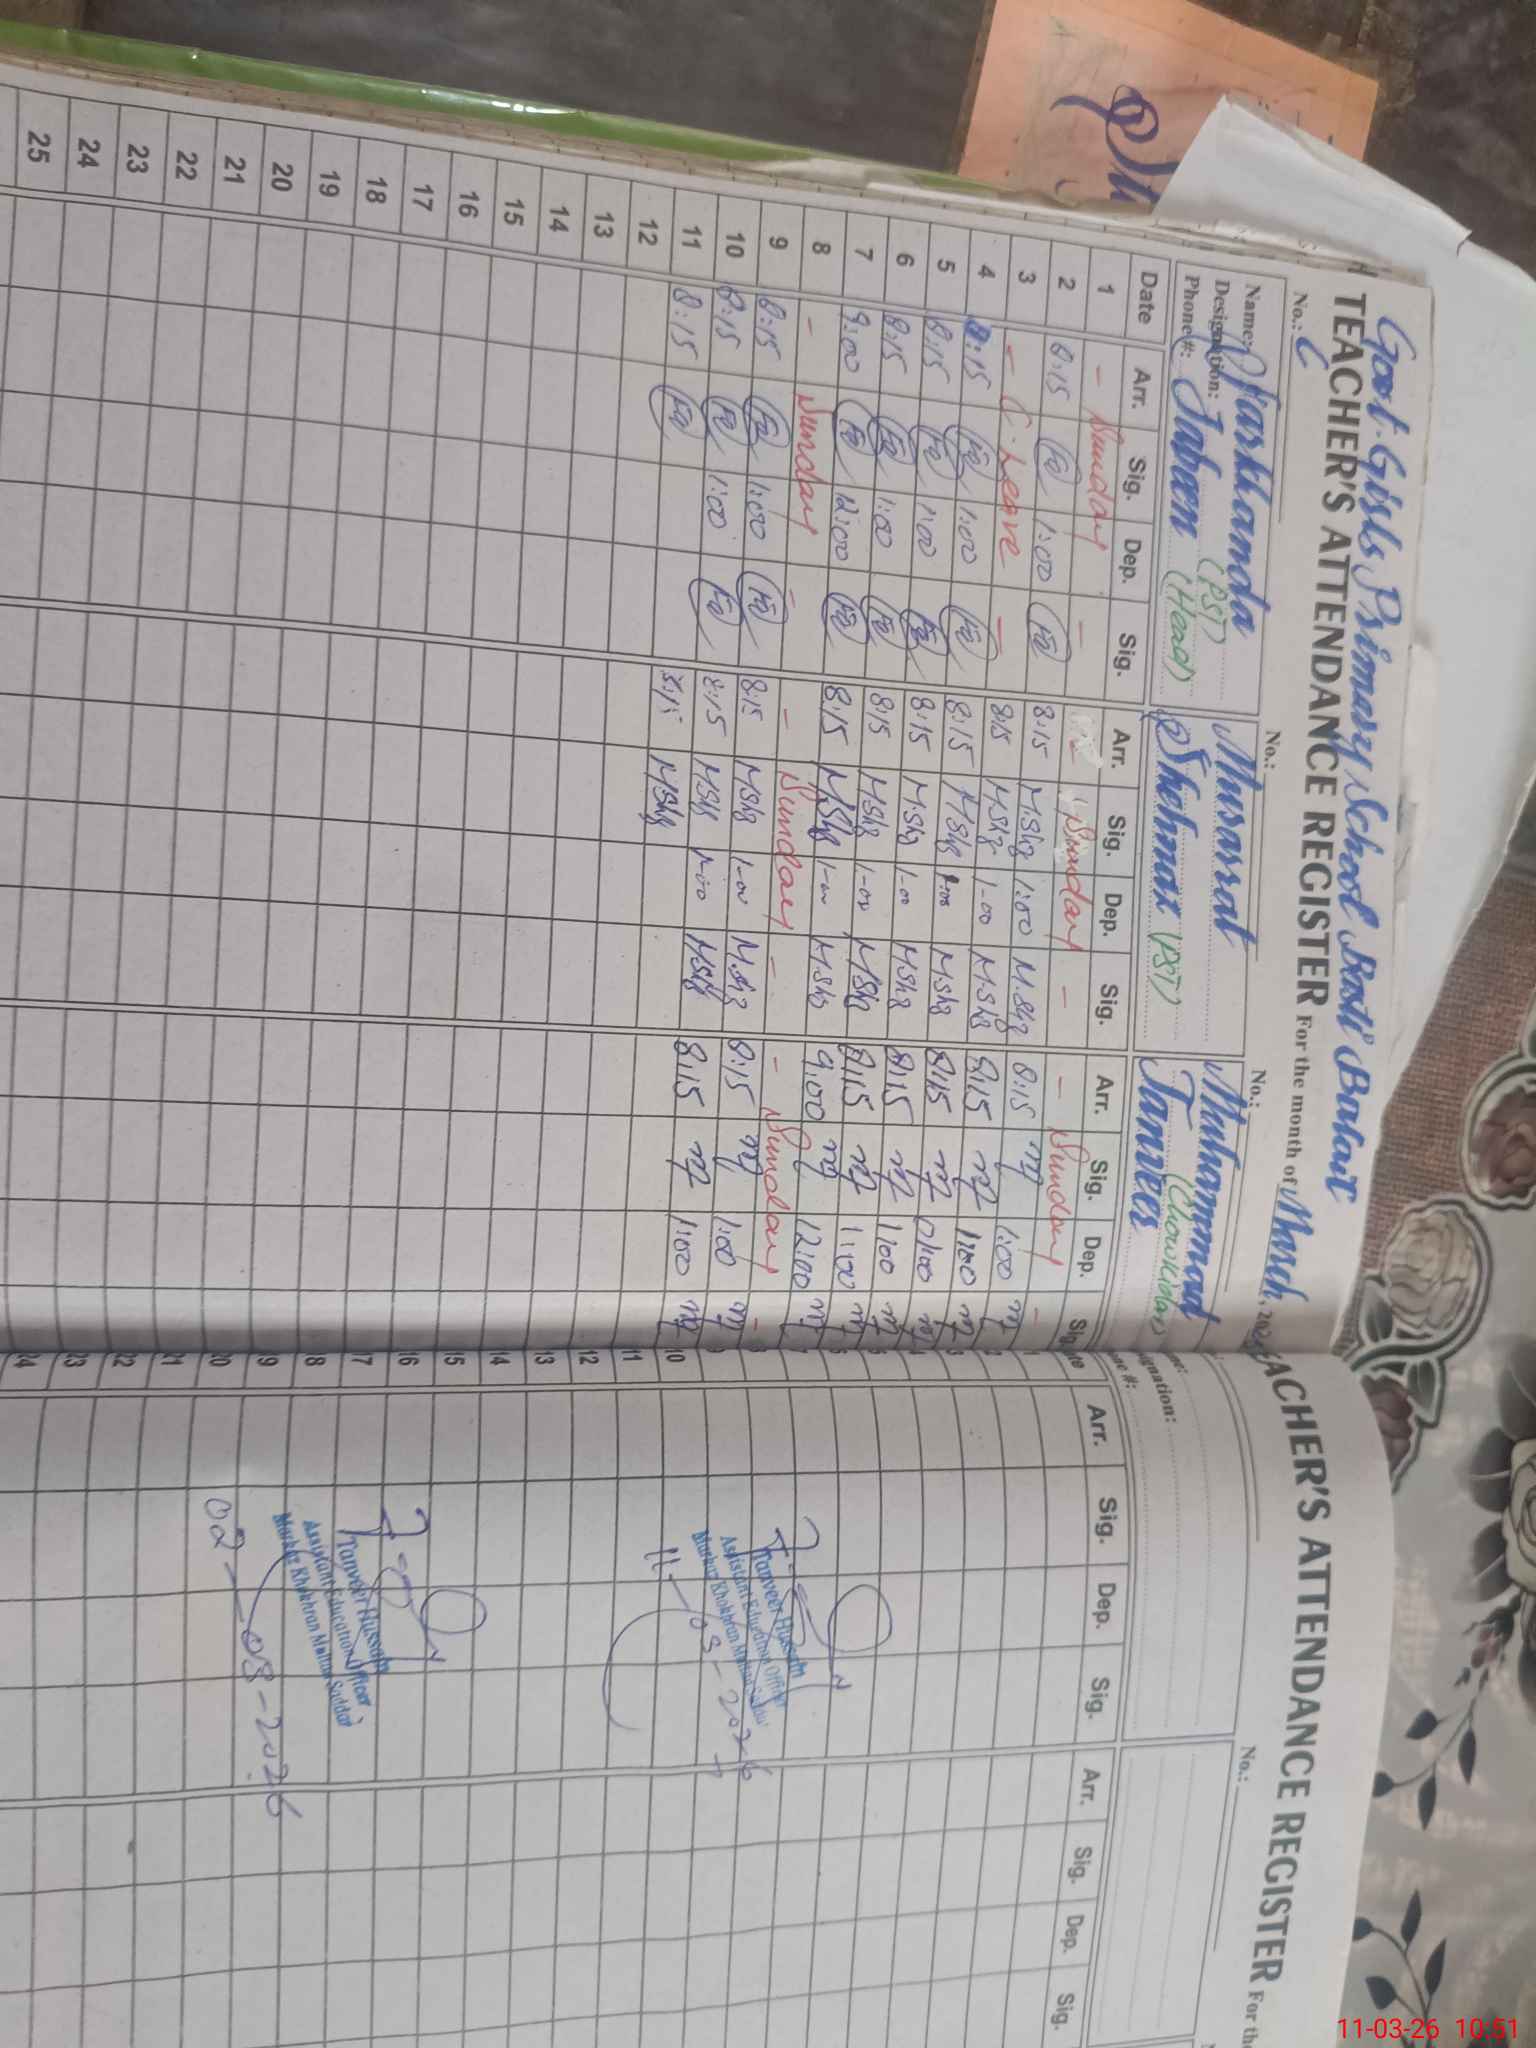 Govt. Girls Primary School Basti Balani
TEACHER'S ATTENDANCE REGISTER For the month of March, 202
No.: No.: No.:
Name: Musarrat Muhammad
Designation: (PST) (Chowkidar)
Phone #: Jabeen (Head) Shehnaz (PST) Tanveer
Date Arr. Sig. Dep. Sig. Arr. Sig. Dep. Sig. Arr. Sig. Dep. Sig.
1 - Sunday - Sunday - - Sunday -
2 8:15 1:00 8:15 M.Shg 1:00 M.Shg 8:15 1:00
3 - C. Leave - 8:15 M.Shg 1-00 M.Shg 8:15 1:00
4 8:15 1:00 8:15 M.Shg 1:00 M.Shg 8:15 0:00
5 8:15 1:00 8:15 M.Shg 1-00 M.Shg 8:15 1:00
6 8:15 1:00 8:15 M.Shg 1-00 M.Shg 8:15 1:00
7 9:00 12:00 8:15 M.Shg 1-00 M.Shg 9:00 12:00
8 - Sunday - - Sunday - - Sunday -
9 8:15 1:00 8:15 M.Shg 1-00 M.Shg 8:15 1:00
10 8:15 1:00 8:15 M.Shg 1-00 M.Shg 8:15 1:00
11 8:15 8:15 M.Shg
12
13
14
15
16
17
18
19
20
21
22
23
24
25
ACHER'S ATTENDANCE REGISTER For the
No.:
gnation:
one #:
Arr. Sig. Dep. Sig. Arr. Sig. Dep. Sig.
Tanveer Hussain
Assistant Education Officer
Markaz Khokhran Multan Saddar
11-03-2026
10
11
12
13
14
15
16
17
18
19
20
21
22
23
24
Tanveer Hussain
Assistant Education Officer
Markaz Khokhran Multan Saddar
02-03-2026
11-03-26 10:51